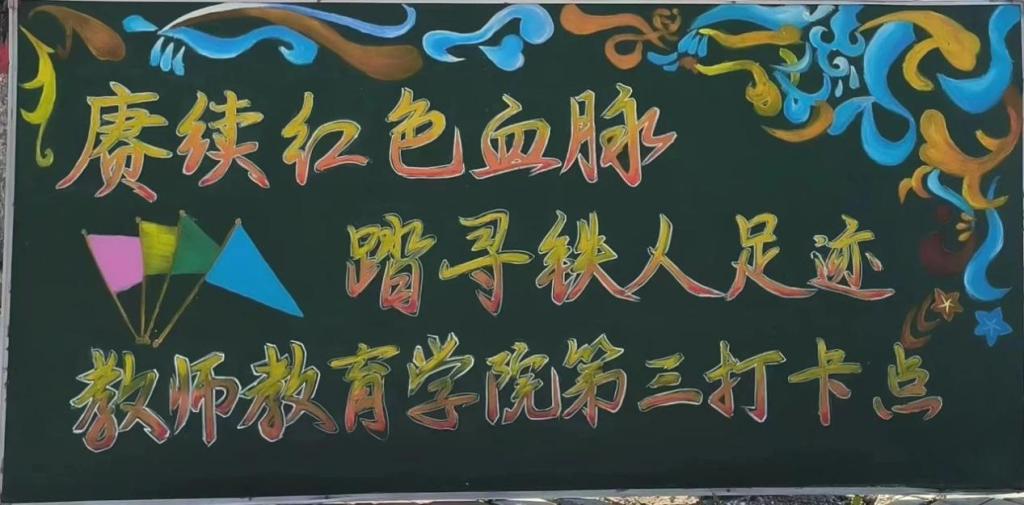 赓续红色血脉
踏寻铁人足迹
教师教育学院第三打卡点